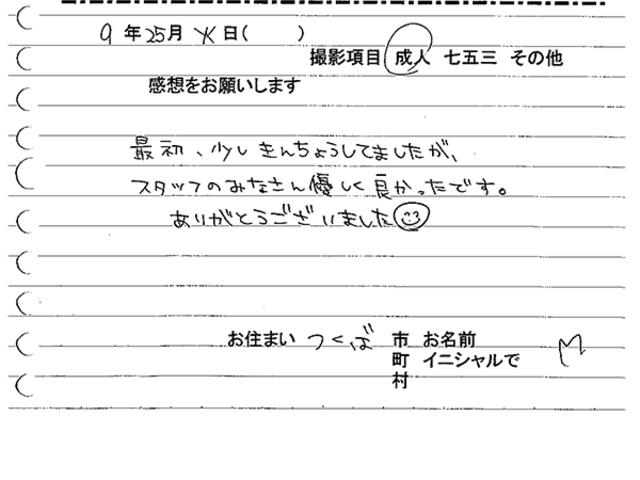 9 年 25 月 火 日( )
撮影項目 成人 七五三 その他
感想をお願いします
最初、少しきんちょうしてましたが、
スタッフのみなさん優しく良かったです。
ありがとうございました
お住まい つくば 市 お名前
町 イニシャルで M
村